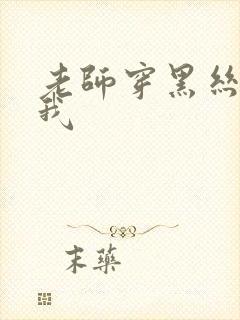 老師穿黑絲
我
末藥